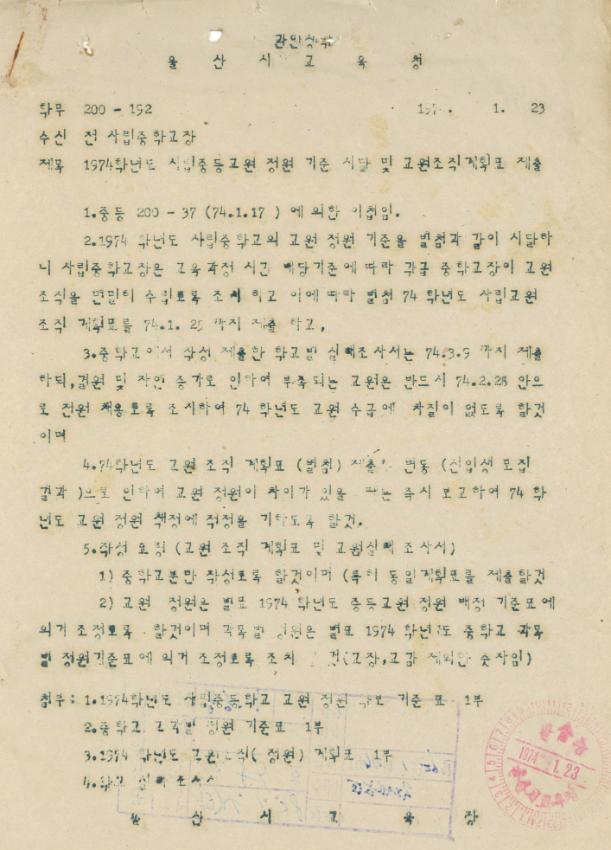 관인생략
울 산 시 교 육 청
학무 200 - 192 1. 23
수신 전 사립중학교장
제목 1974학년도 사립중등교원 정원 기준 시달 및 교원조직계획표 제출
1.중등 200 - 37 (74.1.17 ) 에 의한 이첩임.
2.1974 학년도 사립중학교의 교원 정원 기준을 별첨과 같이 시달하
니 사립중학교장은 교육과정 시간 배당기준에 따라 각급 중학교장이 교원
조직을 면밀히 수립토록 조치 하고 이에 따라 별첨 74 학년도 사립교원
조직 계획표를 74.1. 25 까지 제출 하고,
3.중학교에서 작성 제출한 학교별 실태조사서는 74.3.5 까지 제출
하되,결원 및 자연 증가로 인하여 부족되는 교원은 반드시 74.2.28 안으
로 전원 채용토록 조치하여 74 학년도 교원 수급에 차질이 없도록 할것
이며
4.74학년도 교원 조직 계획표 (별첨) 제출후 변동 (신입생 모집
결과 )으로 인하여 교원 정원이 차이가 있을 때는 즉시 보고하여 74 학
년도 교원 정원 책정에 적정을 기하도록 할것.
5.작성 요령 (교원 조직 계획표 및 교원실태 조사서)
1) 중학교분만 작성토록 할것이며 (특히 동일계획표를 제출할것
2) 교원 정원은 별표 1974 학년도 중등교원 정원 배정 기준표에
의거 조정토록 할것이며 각목별 정원은 별표 1974 학년도 중학교 과목
별 정원기준표에 의거 조정토록 조치 할것(교장,교감 제외한 숫자임)
첨부 : 1.1974학년도 사립중등학교 교원 정원 확보 기준 표 1부
2.중학교 교과별 정원 기준표 1부
3.1974 학년도 교원조직( 정원) 계획표 1부
4.학교 실태 조사서
울 산 시 교 육 장
1974. 1. 23